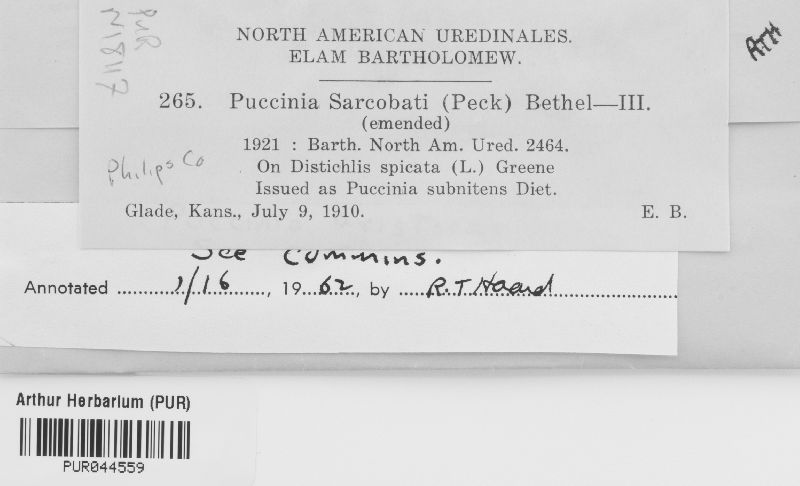 PUR
N1847
NORTH AMERICAN UREDINALES.
ELAM BARTHOLOMEW.
265. Puccinia Sarcobati (Peck) Bethel—III.
(emended)
1921 : Barth. North Am. Ured. 2464.
On Distichlis spicata (L.) Greene
Issued as Puccinia subnitens Diet.
Glade, Kans., July 9, 1910. E. B.
Philips Co
See Cummins.
Annotated 1/16, 1962, by R.T. Haard
Arthur Herbarium (PUR)
PUR044559